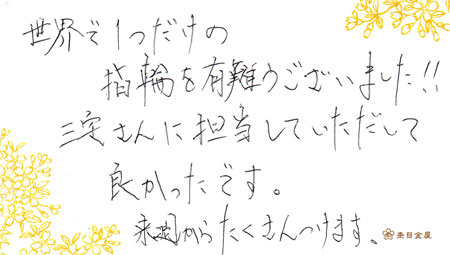 世界で1つだけの
指輪を有難うございました!!
三宅さんに担当していただして
良かったです。
来週からたくさんつけます。
杢目金屋